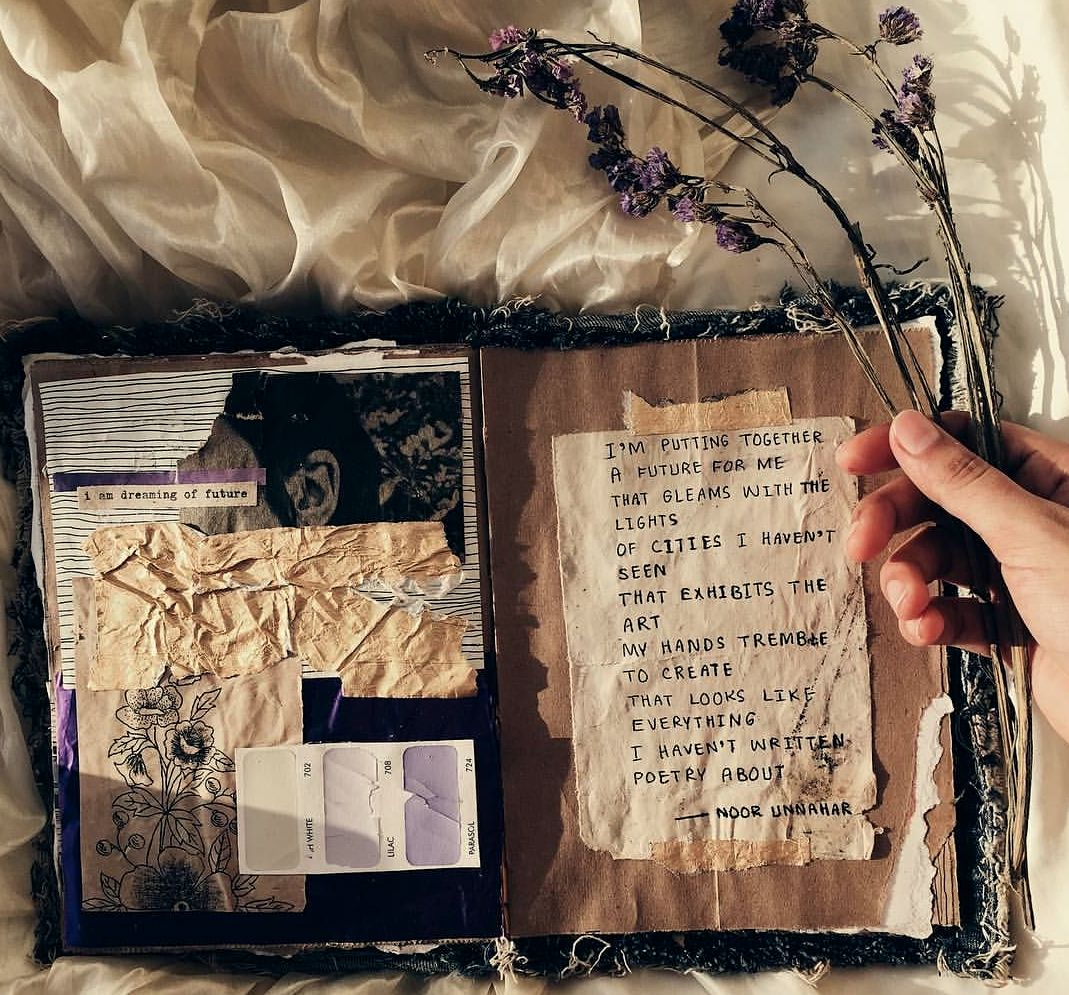 i am dreaming of future
702
WHITE
708
LILAC
724
PARASOL
I'M PUTTING TOGETHER
A FUTURE FOR ME
THAT GLEAMS WITH THE
LIGHTS
OF CITIES I HAVEN'T
SEEN
THAT EXHIBITS THE
ART
MY HANDS TREMBLE
TO CREATE
THAT LOOKS LIKE
EVERYTHING
I HAVEN'T WRITTEN
POETRY ABOUT
— NOOR UNNAHAR